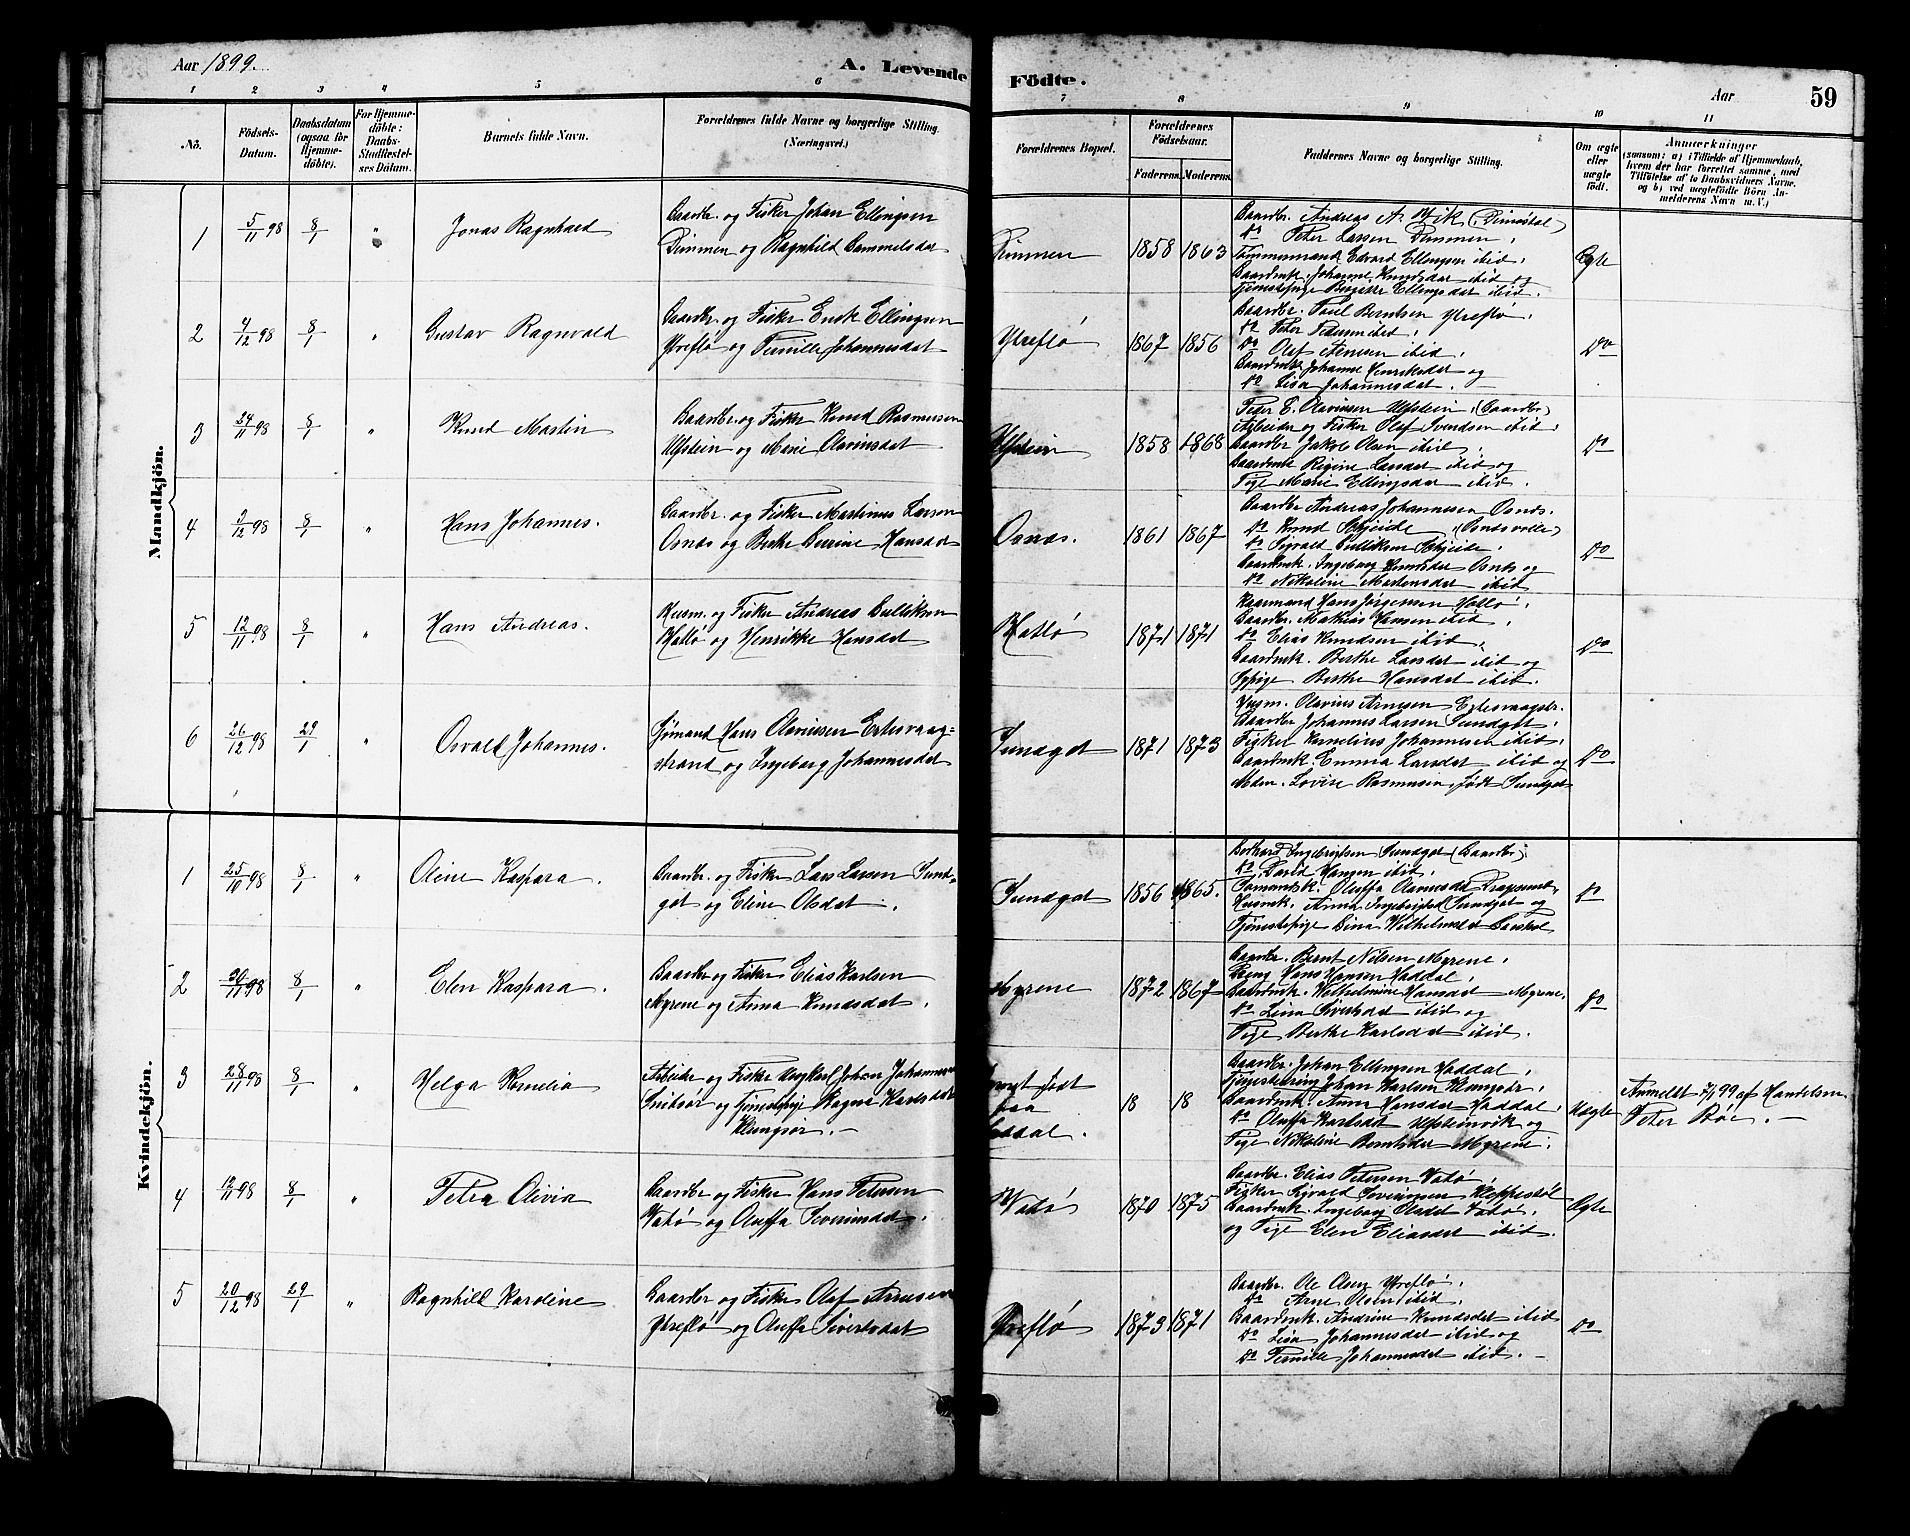 Aar 1899.
A. Levende Födte.
Aar
59
1 2 3 4 5 6 7 8 9 10 11
No.
Födsels-
Datum.
Daabsdatum
(ogsaa for
Hjemme-
döbte).
For Hjemme-
döbte:
Daabs-
Stadfæstel-
ses Datum.
Barnets fulde Navn.
Forældrenes fulde Navne og borgerlige Stilling.
(Næringsvei.)
Forældrenes Bopæl.
Forældrenes
Födselsaar.
Faderens. Moderens.
Faddernes Navne og borgerlige Stilling.
Om ægte
eller
uægte
födt.
Anmærkninger
(saasom: a) i Tilfælde af Hjemmedaab,
hvem der har forrettet samme, med
Tilföielse af to Daabsvidners Navne,
og b) ved uægtefödte Börn An-
melderens Navn m. V.)
Mandkjön.
1 5/11 98 8/1 " Jonas Ragnhard
Gaardbr. og Fisker Johan Ellingsen
Dimmen og Ragnhild Gammelsdat
Dimmen 1858 1863
Gaardbr. Andreas A. Vik (Dimnestal)
do Peter Larsen Dimmen,
Tømmermand Edvard Ellingsen ibid,
Gaardmk. Johanne Knudsdat ibid og
Tjenestepige Birgitte Ellingsdat ibid.
Ægte
2 4/12 98 8/1 " Gustav Ragnvald
Gaardbr. og Fisker Enok Ellingsen
Ytreflø og Pernille Johannesdat
Ytreflø 1867 1856
Gaardbr. Poul Berntsen Ytreflø,
do Peter Pedersen ibid,
do Olaf Arnesen ibid,
Gaardmk. Johanne Henriksdat og
do Lisa Johannesdat. -
do
3 24/11 98 8/1 " Knud Martin
Gaardbr. og Fisker Knud Rasmussen
Ulfstein og Marie Olavinsdat
Ulfstein 1858 1868
Peder E. Olavinsen Ulfstein, (Gaardbr)
Arbeider og Fisker Olaf Svendsen ibid,
Gaardbr Jakob Olsen ibid,
Gaardmk Regine Larsdat ibid og
Pige Marie Ellingsdat ibid.
do
4 2/12 98 8/1 " Hans Johannes.
Gaardbr. og Fisker Martinus Larsen
Osnæs og Berthe Hansdat
Osnæs. 1861 1867
Gaardbr Andreas Johannesen Osnæs.
do Knud Skjeide, (Osnæsvolle)
do Sigvald Gulliksen Skjeide,
Gaardmk. Ingeborg Knudsdat Osnæs og
do Nikoline Martensdat ibid
do
5 12/11 98 8/1 " Hans Andreas.
Husm. og Fisker Andreas Gulliksen
Hatlø og Henrikke Hansdat
Hatlø 1871 1871
Kaarmand Hans Jørgensen Hatlø,
Gaardbr. Mathias Hansen ibid,
do Elias Knudsen ibid,
Gaardmk. Berthe Larsdat ibid og
Berthe Hansdat ibid.
do
6 26/12 98 29/1 " Osvald Johannes.
Sømand Hans Olavussen Eitesvaag-
strand og Ingeborg Johannesdat
Sundgot 1871 1873
Husm. Olavius Arnesen
Gaardbr Johannes Larsen Sundgot,
Fisker Kornelius Johannesen ibid,
Gaardmk. Emma Larsdat ibid og
Mdm. Lovise Rasmussen, født Sundgot
do
Kvindekjön.
1 25/10 98 8/1 " Oline Kaspara.
Gaardbr. og Fisker Lars Larsen Sund-
got og Eline Olsdat.
Sundgot 1856 1865.
Ingebrigtsen Sundgot (Gaardbr),
do David Hansen ibid,
Oluffa
Husmk. Anna Ingebrigtsd Sundgot og
Tjenestepige Gina Wilhelmsd
do
2 30/11 98 8/1 " Elen Kaspara.
Gaardbr og Fisker Elias Karlsen
Myrene og Anna Knudsdat.
Myrene 1872 1867
Gaardbr. Bernt Nilsen Myrene,
Hans Hansen Haddal,
Gaardmk. Wilhelmine Hansdat Myrene,
do Lina Sivertsdat ibid og
Pige Berthe Karlsdat ibid.
do
3 28/11 98 8/1 " Helga Kornelia
Arbeider og Fisker Ungkarl Johan Johannesen
og Tjenestepige Ragna Karlsdat
Klungsør. -
født
paa
Haddal. 18 18
Gaardbr. Johan Ellingsen Haddal,
Johan Karlsen Klungsør,
Gaardmk. Anne Hansdat Haddal,
do Oluffa Karlsdat Ulfsteinvik og
Pige Nikoline Berntsdat Myrene.
Uægte Anmeldt 7/1 99 af Handelsm.
Peter Bøe. -
4 12/11 98 8/1 " Petra Olivia
Gaardbr og Fisker Hans Petersen
Vatø og Oluffa Severinsdat.
Vatø 1870 1875
Gaardbr. Elias Petersen Vatø,
Fisker Sigvald Severinsen Kleppestøl
Gaardmk. Ingeborg Olsdat Vatø,
og Pige Elen Eliasdat ibid.
Ægte
5 20/12 98 29/1 " Ragnhild Karoline
Gaardbr og Fisker Olaf Arnesen
Ytreflø og Oluffa Sivertsdat
Ytreflø 1873 1871
Gaardbr. Ole Olsen Ytreflø,
do Arne Olsen ibid,
Gaardmk. Andrine Knudsdat ibid
do Lisa Johannesdat ibid og
do Pernille Johannesdat ibid. -
do